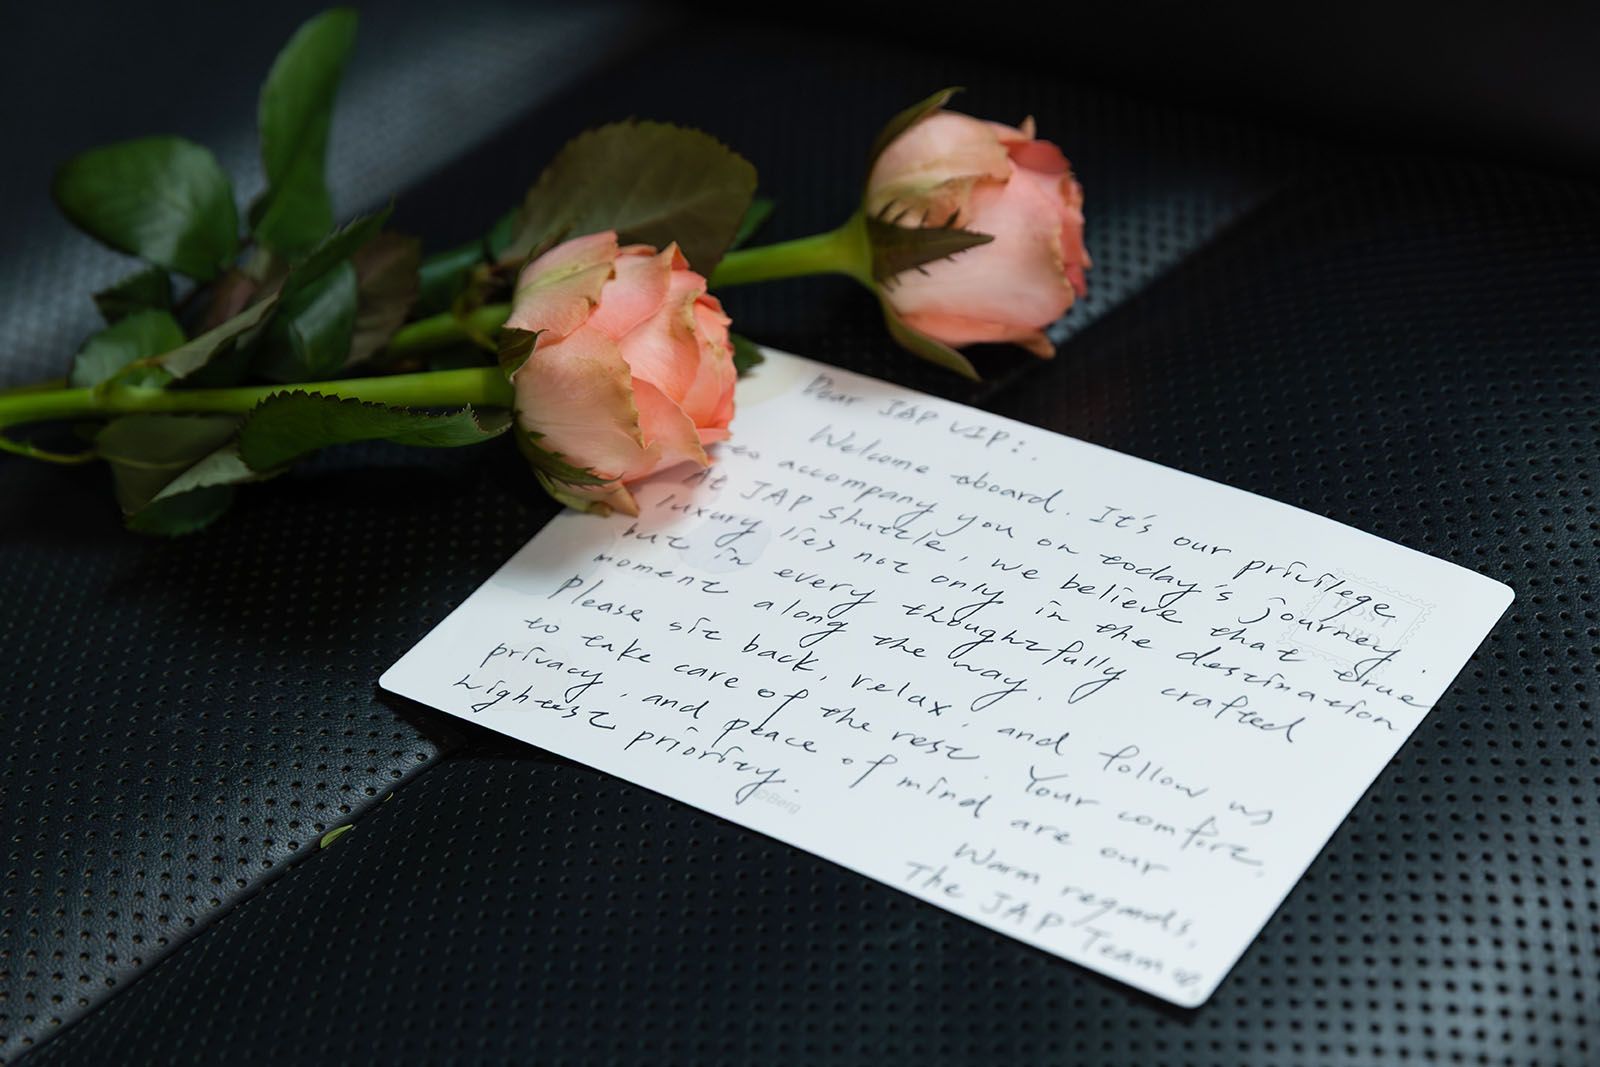 Dear JAP VIP:
Welcome aboard. It's our privilege
to accompany you on today's journey.
At JAP Shuttle, we believe that true
luxury lies not only in the destination
but in every thoughtfully crafted
moment along the way.
Please sit back, relax, and follow us
to take care of the rest. Your comfort,
privacy, and peace of mind are our
hightest priority.
Warm regards,
The JAP Team
POST
CARD